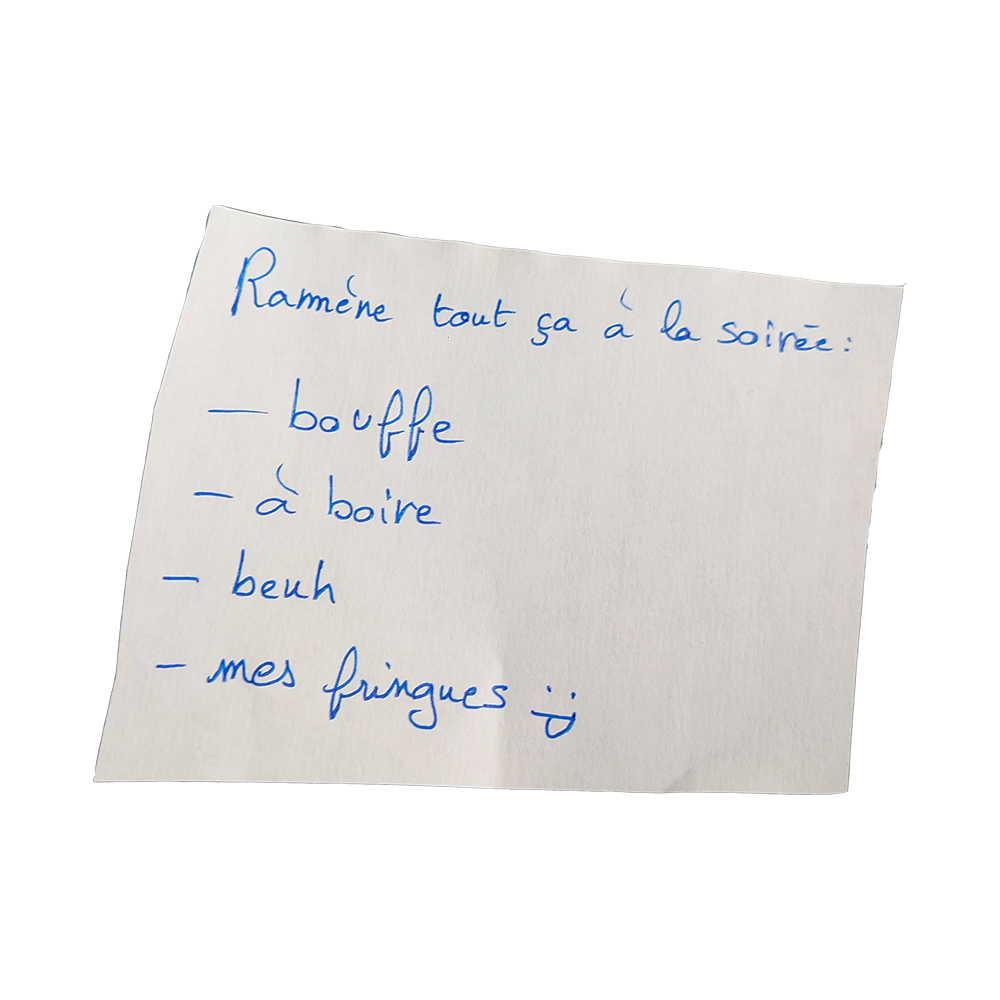 Ramène tout ça à la soirée :
— bouffe
- à boire
- beuh
- mes fringues :P